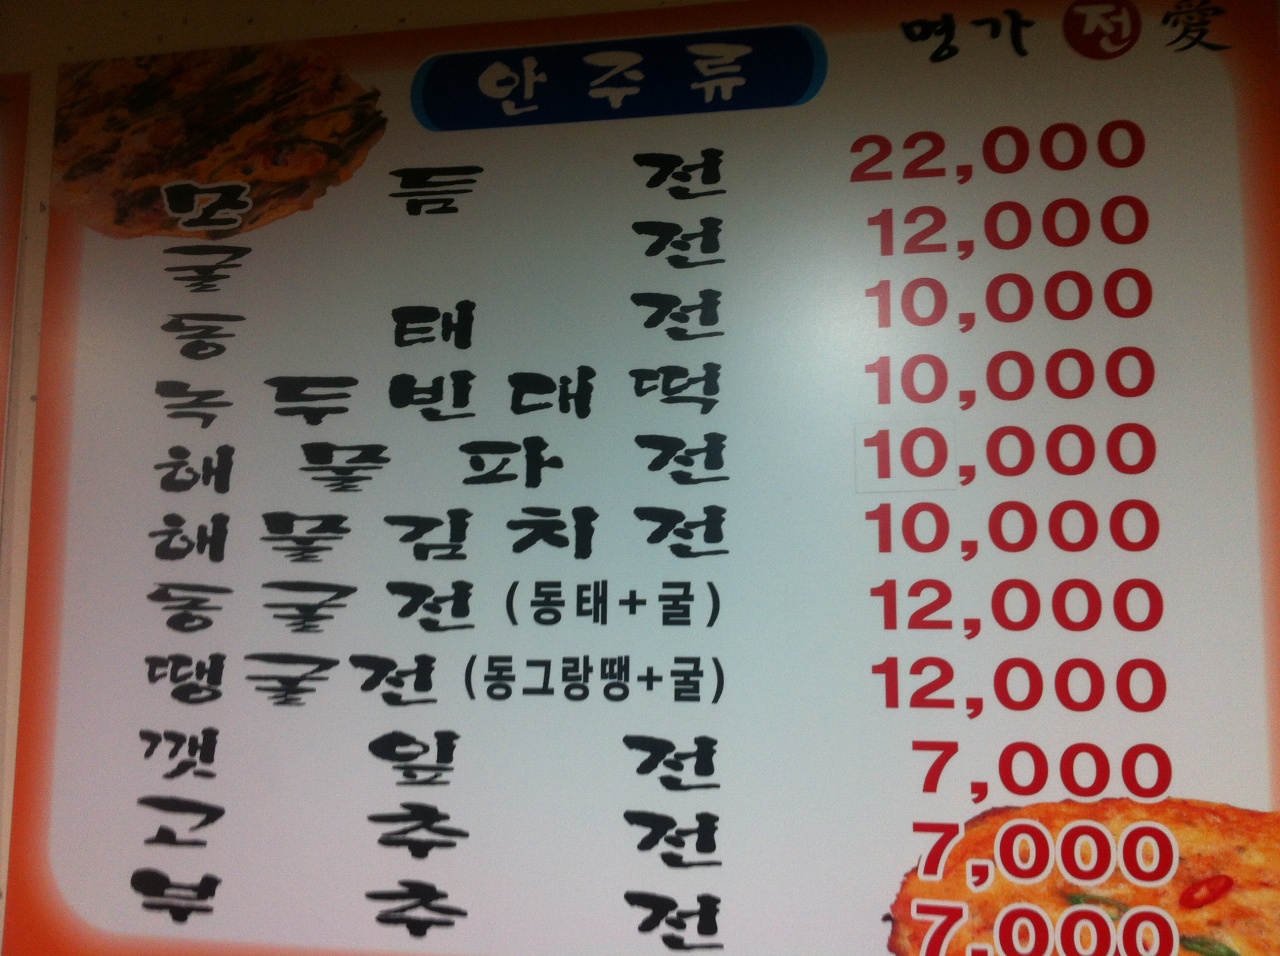 명가 전 愛
안주류
모듬전 22,000
굴전 12,000
동태전 10,000
녹두빈대떡 10,000
해물파전 10,000
해물김치전 10,000
동굴전 (동태+굴) 12,000
땡굴전 (동그랑땡+굴) 12,000
깻잎전 7,000
고추전 7,000
부추전 7,000